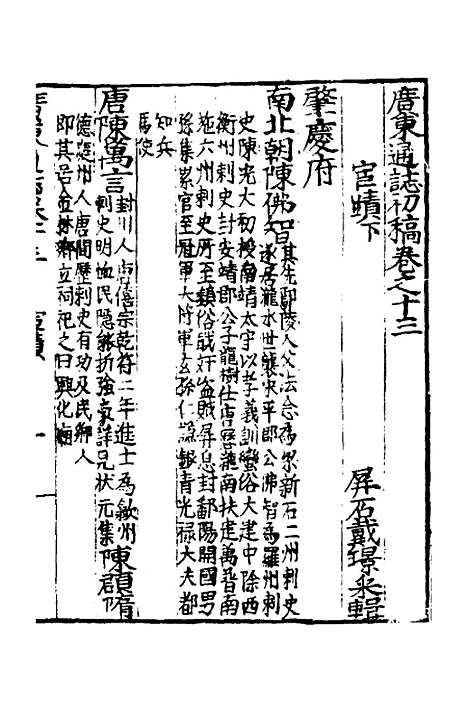 廣東通誌初稿卷之十三
屏石戴璟采輯
官蹟下
肇慶府
南北朝陳佛智其先鄢陵人父法念為梁新石二州刺史
遂居瀧水世襲永平郡公佛智為羅州刺
史陳光大初授南靖太守以孝義訓蠻俗大建中除西
衡州刺史封安靖郡公子龍樹仕唐歷瀧南扶建萬普南
施六州刺史所至鎮俗戢奸盜賊屏息封鄱陽開國男
孫集累官至冠軍大將軍玄孫仁 銀青光祿大夫都
知兵
馬使
唐陳萬言封川人唐僖宗乾符二年進士為歙州
刺史明恤民隱能折強 詳見狀元集陳頵隋
德慶州人唐間歷刺史有功及民鄉人
即其居 鄉立祠祀之曰興化廟